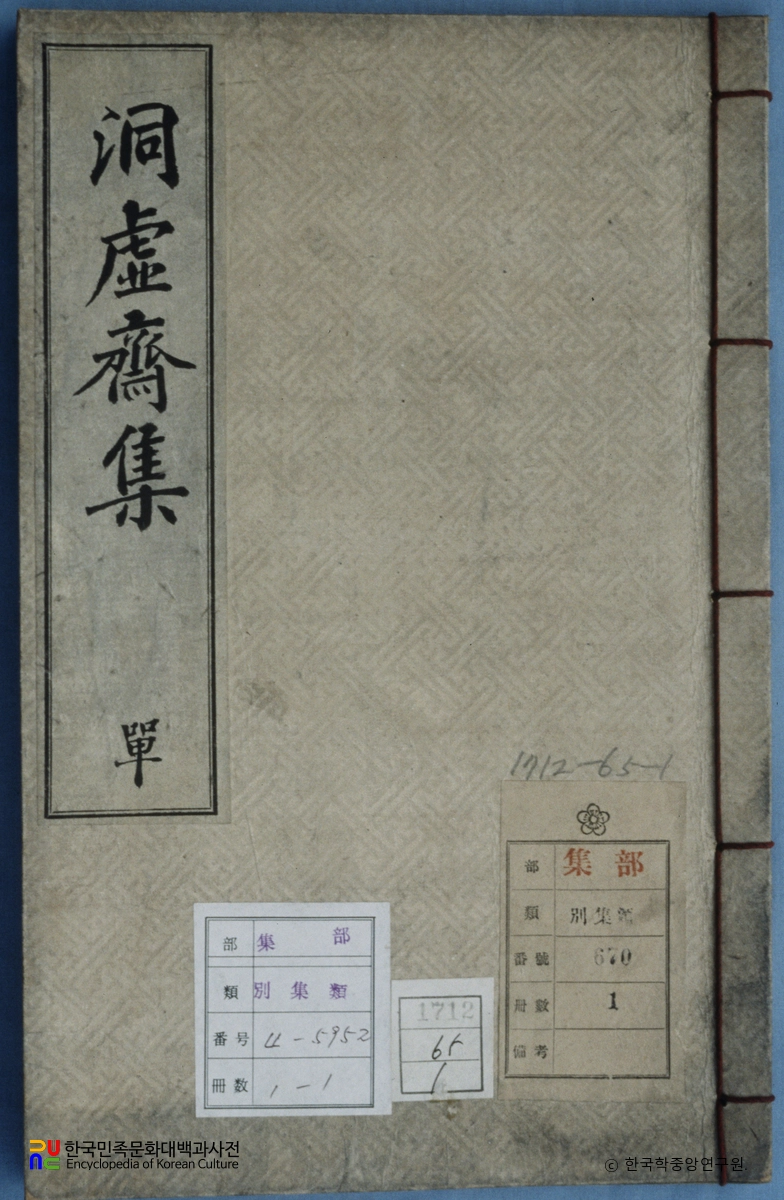 洞虛齋集
單
1712-65-1
部 集部
類 別集類
番號 670
冊數 1
備考
部 集部
類 別集類
番号 4-5952
冊数 1-1
1712
65
1
한국민족문화대백과사전
Encyclopedia of Korean Culture
© 한국학중앙연구원